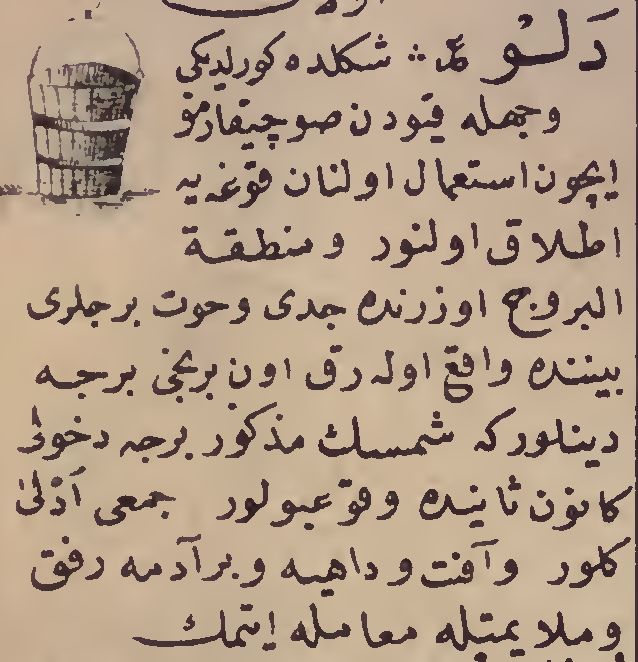 دَلْو ع ؞ شكلده كورلديكى
وجهله قيودن صو چيقارمق
ايچون استعمال اولنان قوغه يه
اطلاق اولنور ومنطقة
البروج اوزرنده جدى وحوت برجلرى
بيننده واقع اوله رق اون برنجى برجه
دينلور كه شمسك مذكور برجه دخولى
كانون ثانينده وقوعبولور جمعى اَدْلىٰ
كلور وآفت وداهيه وبر آدمه رفق
وملايمتله معامله ايتمك